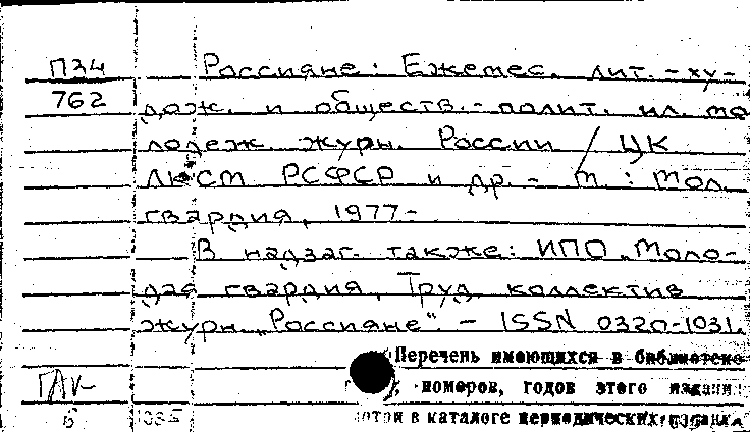 П34 Россияне: Ежемес. лит.-ху-
762 дож. и обществ.-полит. ил. мо
лодеж. журн. России / ЦК
ЛКСМ РСФСР и др. - М. : Мол.
гвардия, 1977-
В надзаг. также: ИПО „Моло-
дая гвардия, Труд. коллектив
журн. „Россияне". - ISSN 0320-1031.
Перечень имеющихся в библиотеке
номеров, годов этого издани
в каталоге периодических